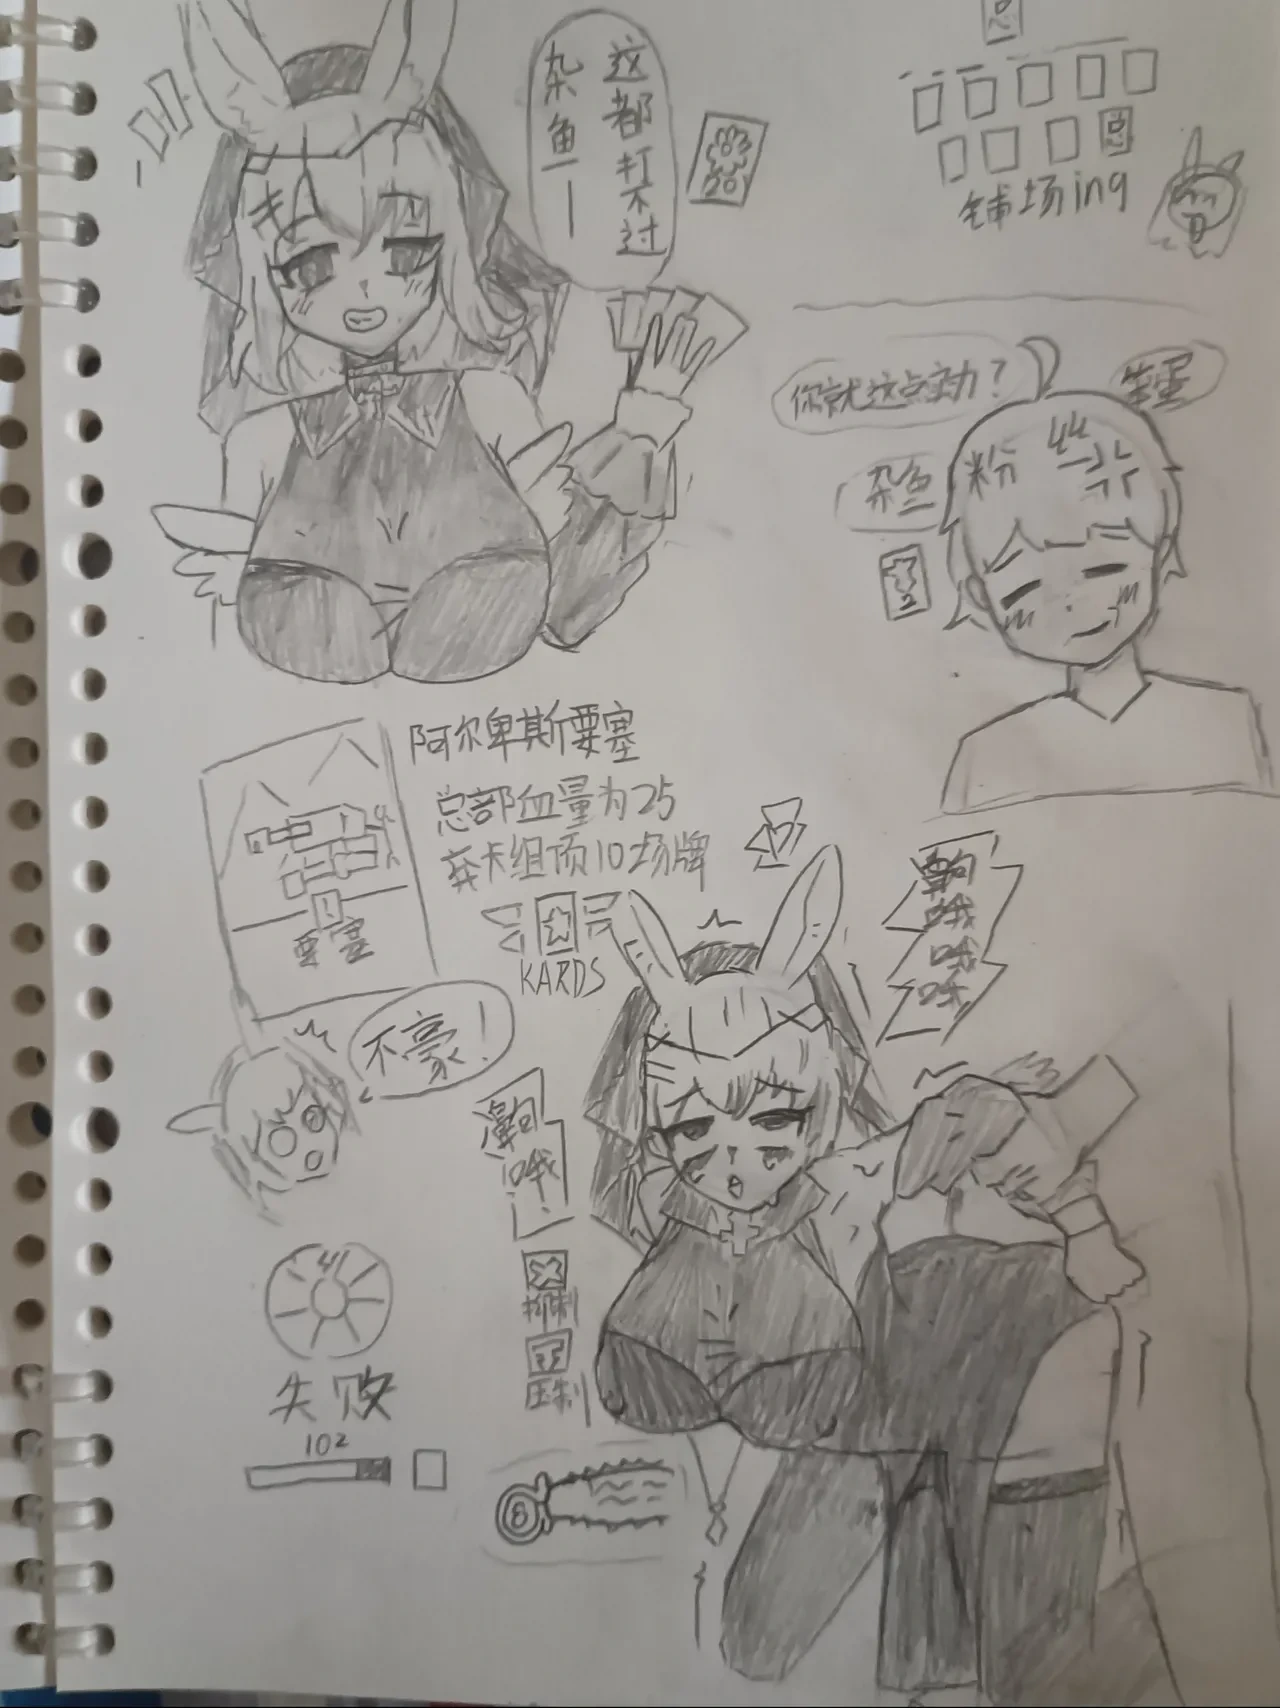 总
这都打不过
杂鱼一
总
铺场ing
你就这点实力？
笨蛋
杂鱼
粉
2
阿尔卑斯要塞
总部血量为25
弃卡组顶10场牌
要塞
KARDS
不豪！
齁哦哦哦
齁哦！
抑制
压制
失败
102
8